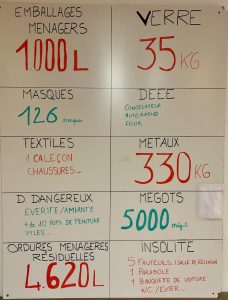 EMBALLAGES
MENAGERS
1000 L
VERRE
35 KG
MASQUES
126 masques
DEEE
CONGELATEUR
AUTORADIO
FOUR
TEXTILES
1 CALEÇON
CHAUSSURES...
METAUX
330 KG
D. DANGEREUX
EVERITE/AMIANTE
+ de 10 POTS DE PEINTURE
PILES...
MEGOTS
5000 mégots
ORDURES MENAGERES
RÉSIDUELLES
4.620L
INSOLITE
5 FAUTEUILS (SALLE DE RÉUNION
1 PARABOLE
1 BANQUETTE DE VOITURE
WC/EVIER...